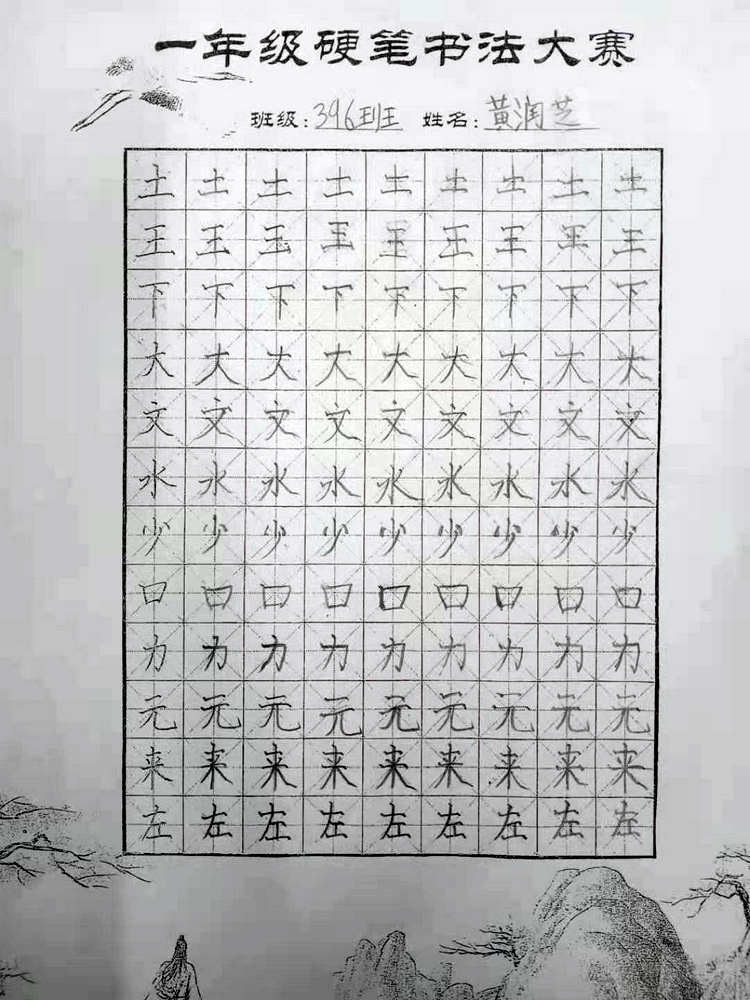 一年级硬笔书法大赛
班级:396班 姓名:黄润芝
土土土土土土土土土
王王玉王王王王王王
下下下下下下下下下
大大大大大大大大大
文文文文文文文文文
水水水水水水水水水
少少少少少少少少少
口口口口口口口口口
力力力力力力力力力
元元元元元元元元元
来来来来来来来来来
左左左左左左左左左